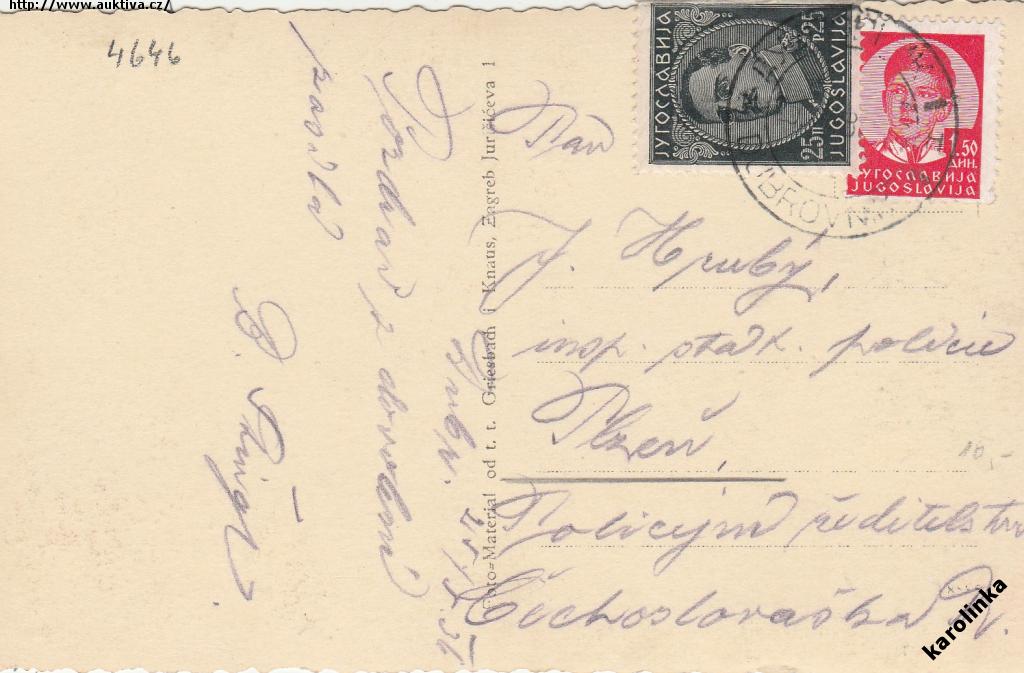 http://www.auktiva.cz/
4646
Pozdrav z dovolené
posílá
Foto=Material od t. t. Griesbach i Knaus, Zagreb Jurišićeva 1
ЈУГОСЛАВИЈА
JUGOSLAVIJA
25 П
P 25
1.50
ДИН.
ЈУГОСЛАВИЈА
JUGOSLAVIJA
Pan
J. Hrubý,
insp. stát. policie
Plzeň,
Policejní ředitelství
Čechoslovaška R.
10,-
karolinka